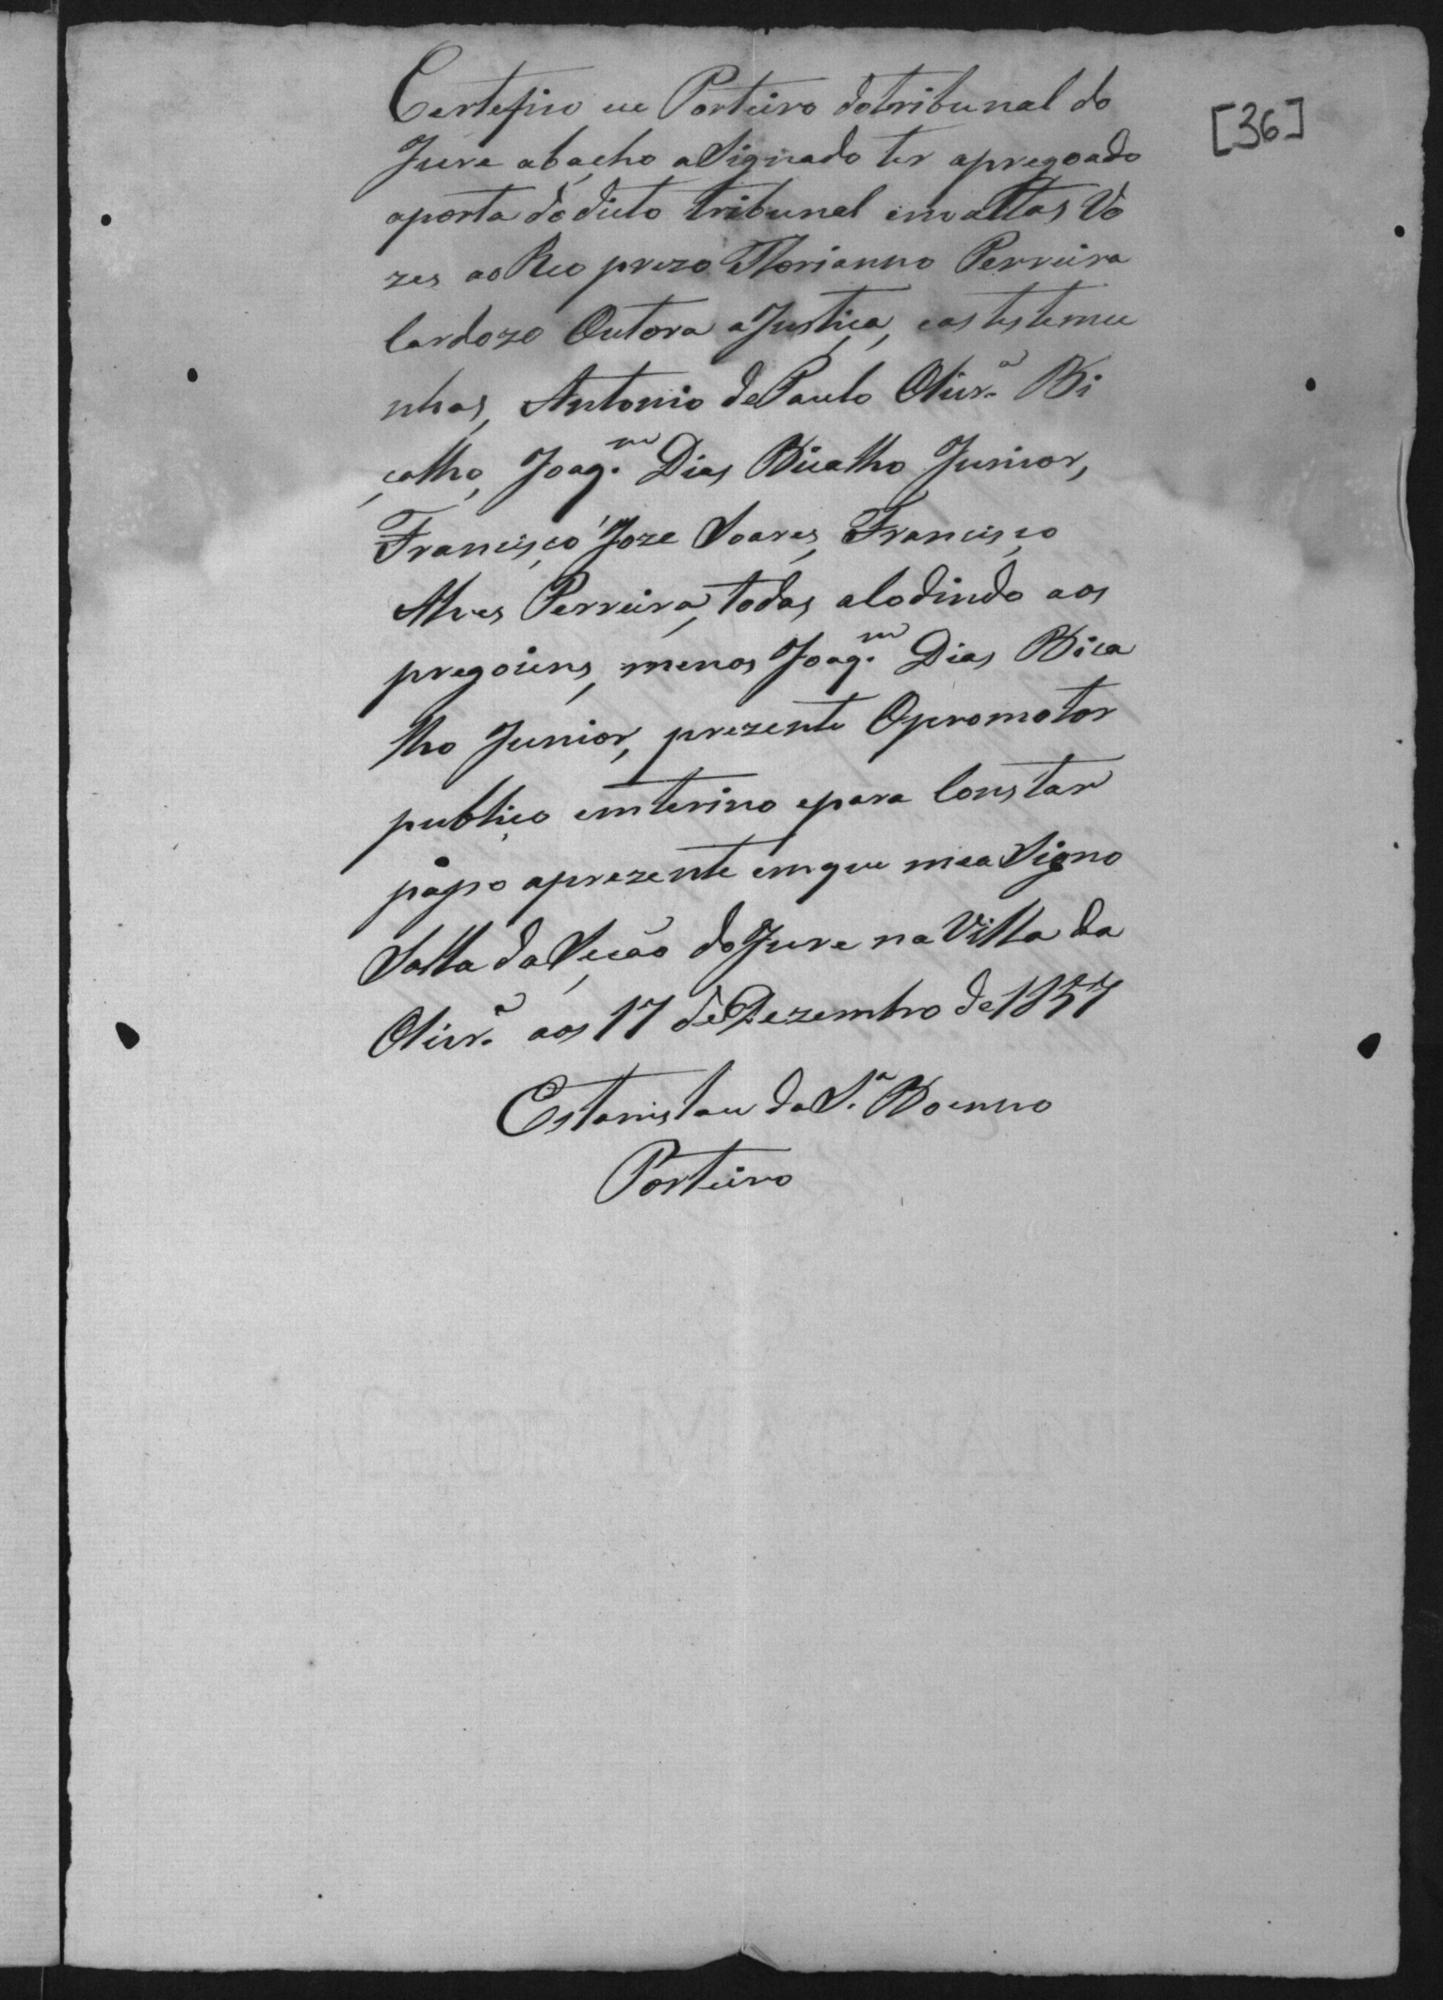 [36]
Certefico eu Porteiro dotribunal do
Jure abacho aSignado ter apregoado
aporta dodicto tribunal em altas Vo
zes ao Reo prezo Florianno Perreira
Cardozo Outora aJustiça, eas testemu
nhas, Antonio dePaulo Olivr.ª Bi
calho, Joaq.m Dias Bicalho Junior,
Francisco Joze Soares, Francisco
Alves Perreira, todas alodindo aos
pregoiens, menos Joaq.m Dias Bica
lho Junior, prezente Opromotor
publico emterino epara Constar
paço aprezente emque meaSigno
Salla daSeção doJure naVilla da
Olivr.ª aos 17 deDezembro de1857
Estanislau daS.ª Boenno
Porteiro